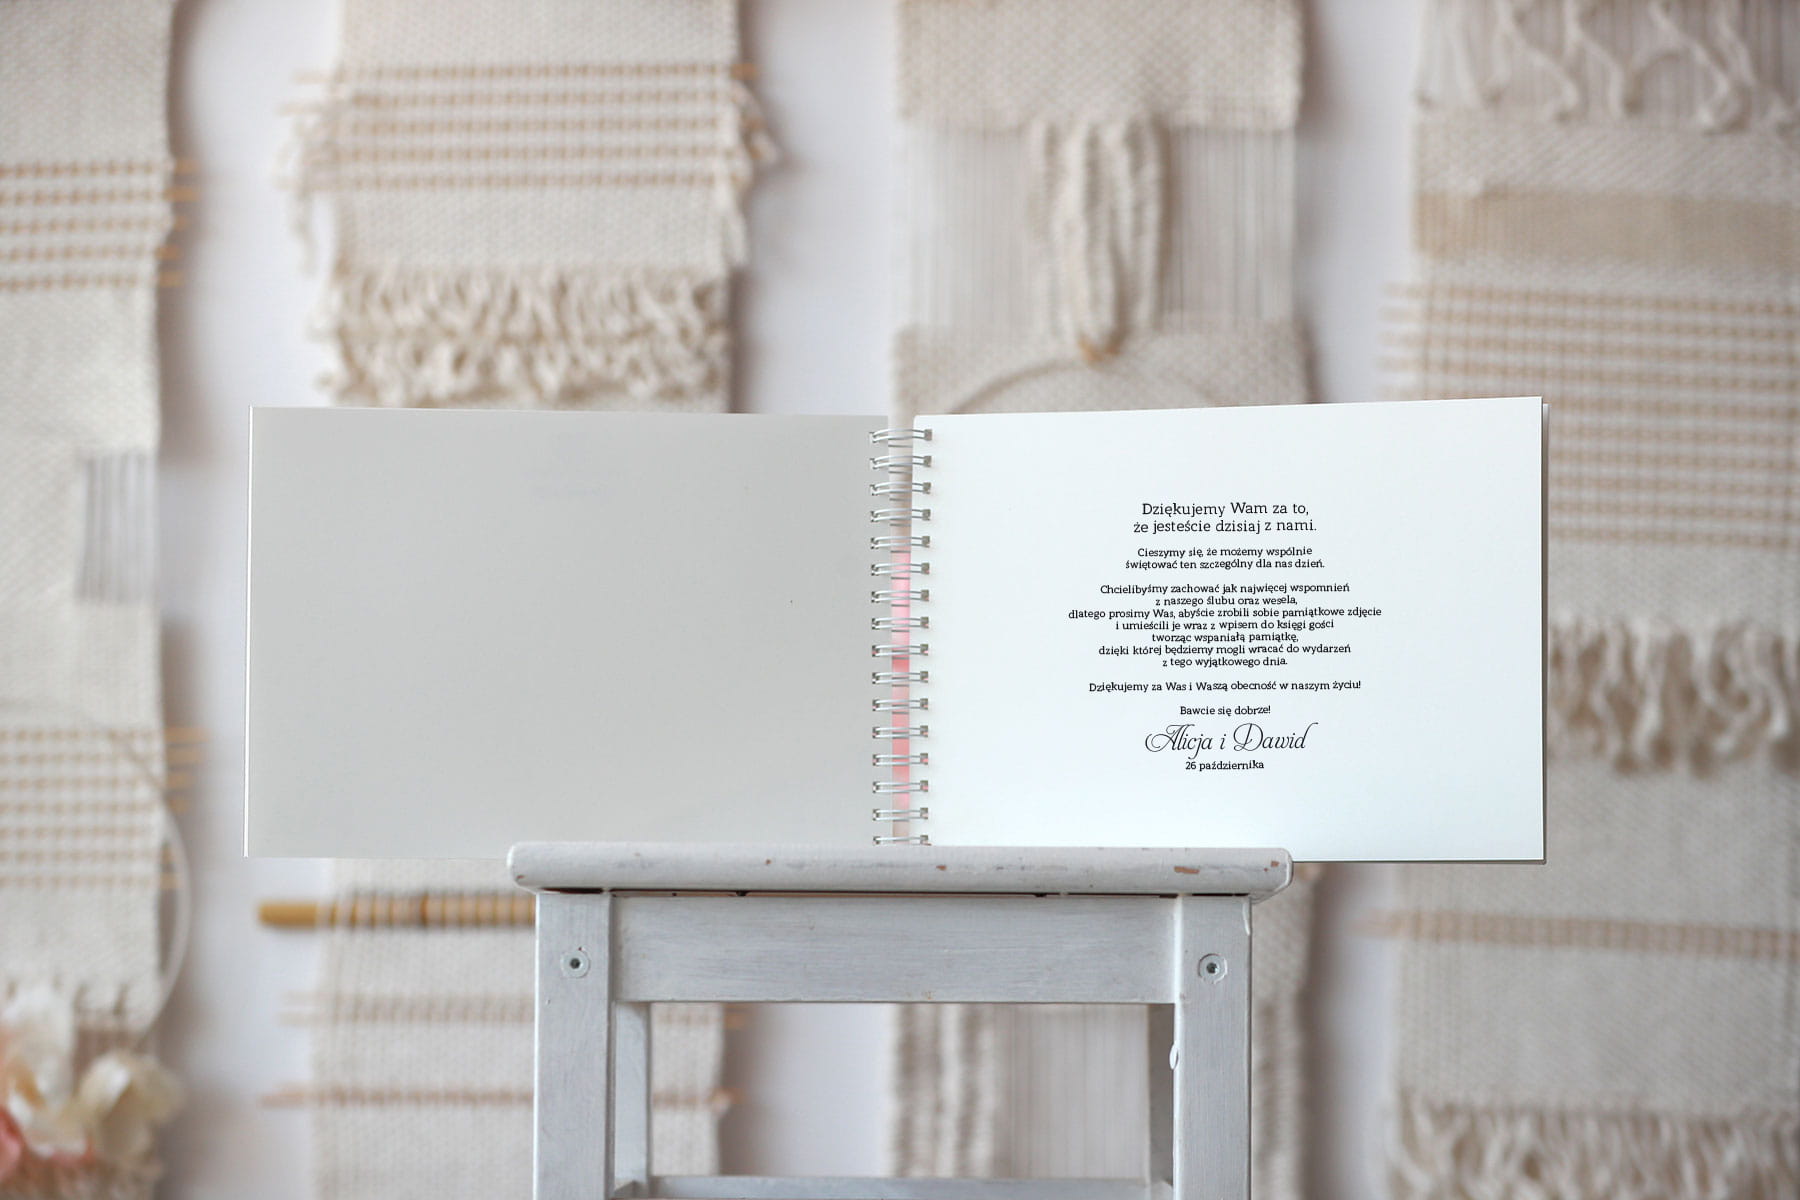 Dziękujemy Wam za to,
że jesteście dzisiaj z nami.
Cieszymy się, że możemy wspólnie
świętować ten szczególny dla nas dzień.
Chcielibyśmy zachować jak najwięcej wspomnień
z naszego ślubu oraz wesela,
dlatego prosimy Was, abyście zrobili sobie pamiątkowe zdjęcie
i umieścili je wraz z wpisem do księgi gości
tworząc wspaniałą pamiątkę,
dzięki której będziemy mogli wracać do wydarzeń
z tego wyjątkowego dnia.
Dziękujemy za Was i Waszą obecność w naszym życiu!
Bawcie się dobrze!
Alicja i Dawid
26 października